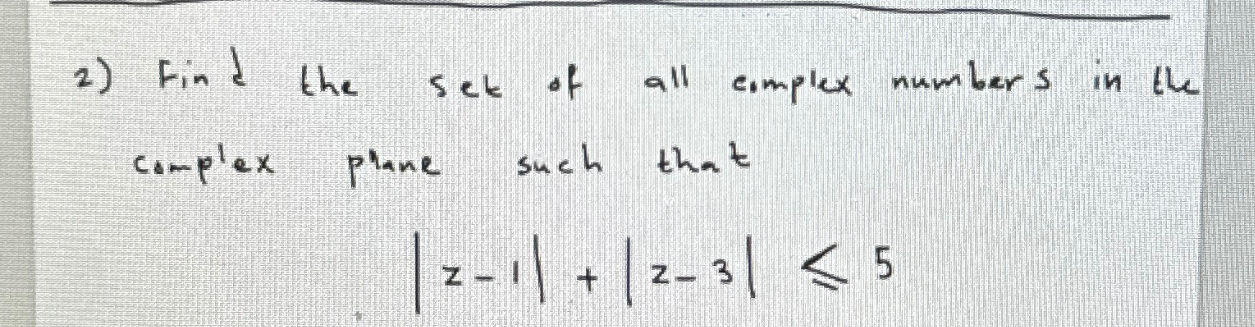 2) Find the set of all complex numbers in the
complex plane such that
|z-1| + |z-3| ⩽ 5